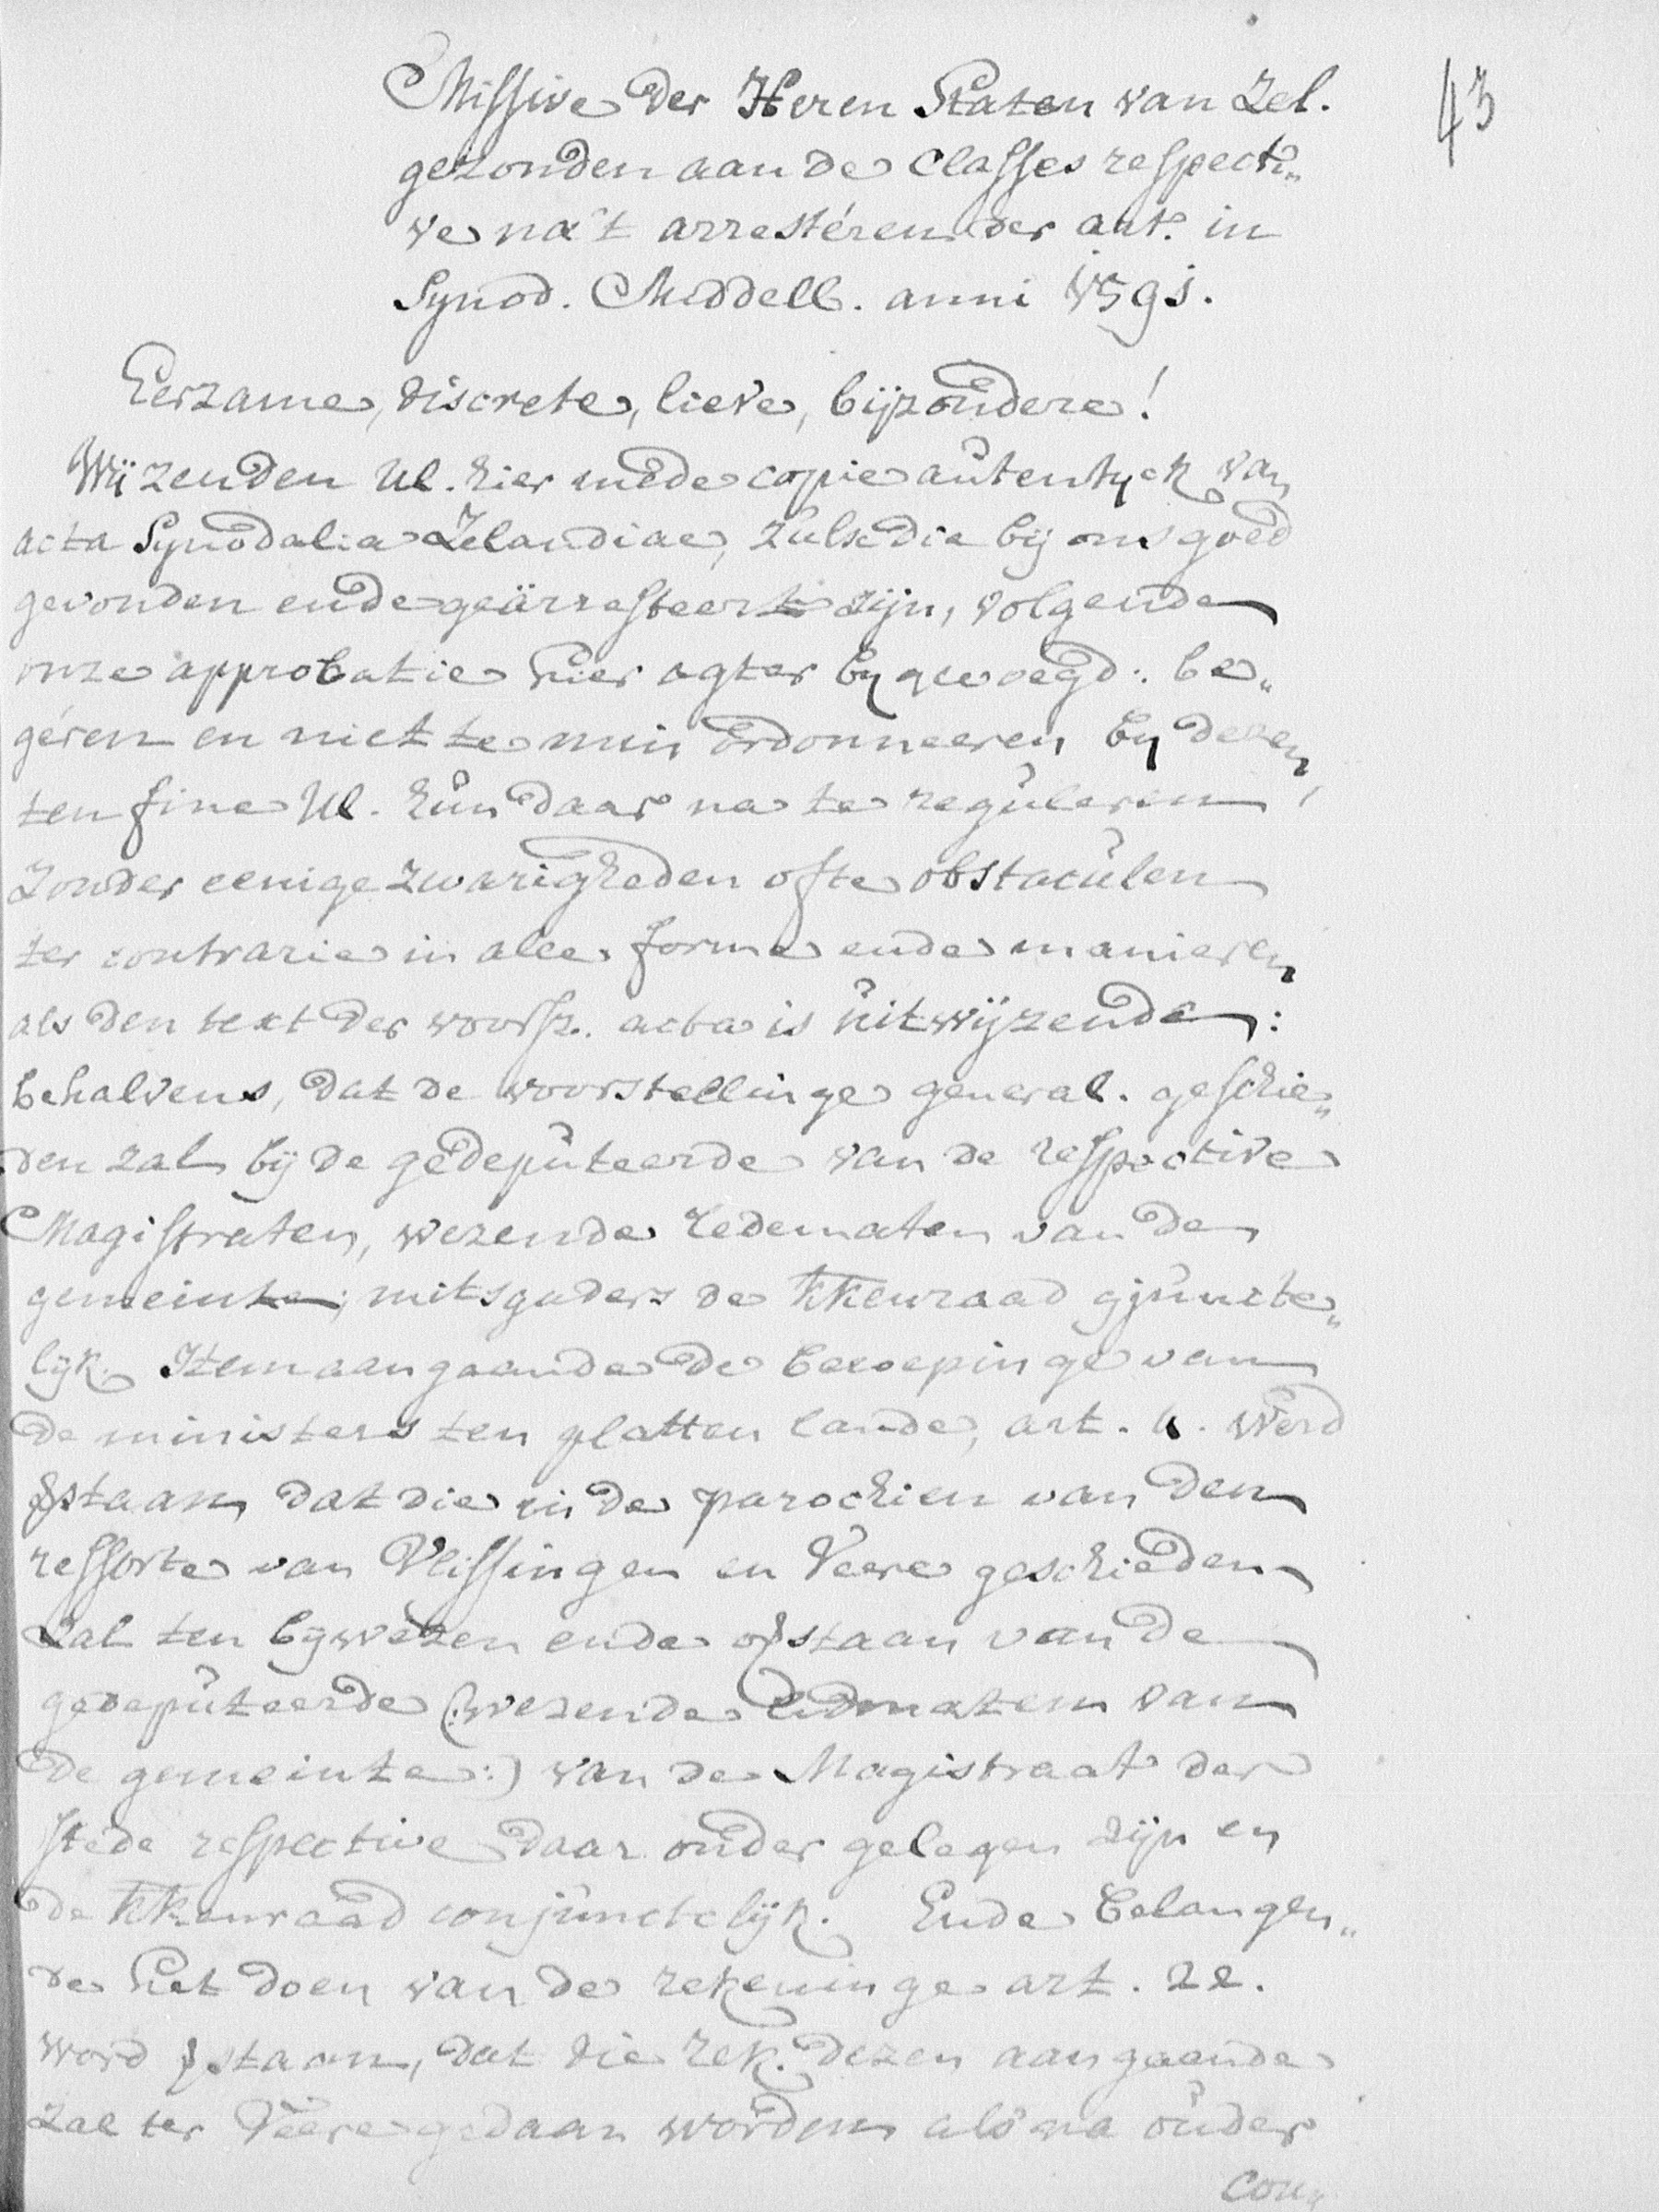 43
Missive der Heren Staten van Zel.
gezonden aan de Classes respecti„
ve na't arrestéren der art. in
Synod. Middelb. anni 1591.
Eerzame, discrete, lieve, bijzondere!
Wij zenden Ul. hier mede copie autentyck van
acta Synodalia Zelandiae, zulke die bij ons goed
gevonden ende geärresteert zijn, volgende
onze approbatie hier agter bygevoegd: be„
géren en niet te min ordonneeren by dezen,
ten fine Ul. hun daar na te reguleren,
Zonder eenige zwarigheden ofte obstaculen
ter contrarie in alle forme ende manieren
als den text der voorsz. acta is uitwijzende:
behalvens, dat de voorstellinge general. geschie„
den zal bij de gedeputeerde van de respective
Magistraten, wezende ledematen van de
gemeinte; mitsgaders de kkenraad gjuncte„
lijk. Item aangaande de beroepinge van
de ministers ten platten lande, art. 4. werd
ꝟstaan dat die in de parochien van den
ressorte van Vlissingen en Veere geschieden
zal ten bywezen ende oꝟstaan van de
gedeputeerde (:wezende ledmaten van
de gemeinte:) van de Magistraat der
stede respective daar onder gelegen zijn en
de kkenraad conjunctelijk. Ende belangen„
de het doen van de rekeninge art. 22.
word ꝟstaan, dat die rek. dezen aangaande
zal ter Veere gedaan worden als na onder
con„